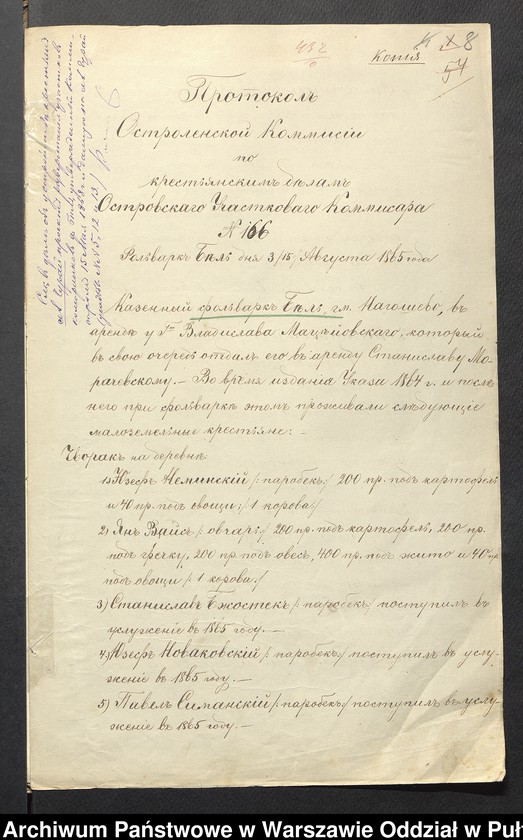 432
Копія
8
54
Протоколъ
Остроленской Коммисіи
по
крестьянскимъ дѣламъ
Островскаго Участковаго Коммисара
N 166
Фольваркъ Бѣль дня 3/15 Августа 1865 года
Казенный фольваркъ Бѣль, гм. Нагошево, въ
арендѣ у Гна Владислава Мацѣйовскаго, который
въ свою очередь отдалъ его въ аренду Станиславу Мо-
рачевскому. — Во время изданія Указа 1864 г. и послѣ
него при фольваркѣ этомъ проживали слѣдующіе
малоземельные крестьяне: —
Чворакъ на деревнѣ
1) Юзефъ Неминскій /: паробекъ :/ 200 пр. подъ картофель
и 40 пр. подъ овощи :/ 1 корова :/
2) Янъ Вайсъ /: овчаръ :/ 200 пр. подъ картофель, 200 пр.
подъ гречку, 200 пр. подъ овесъ, 400 пр. подъ жито и 40 пр.
подъ овощи /: 1 корова :/
3) Станиславъ Бжостекъ /: паробекъ :/ поступилъ въ
услуженіе въ 1865 году. —
4) Юзефъ Новаковскій /: паробекъ :/ поступилъ въ услу-
женіе въ 1865 году. —
5) Павелъ Симанскій /: паробекъ :/ поступилъ въ услу-
женіе въ 1865 году. —
Archiwum Państwowe w Warszawie Oddział w Puł